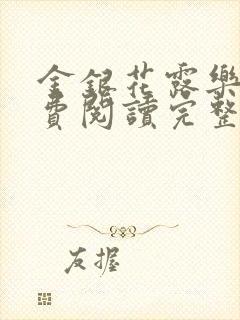 金銀花露樂
費閱讀完整
友握